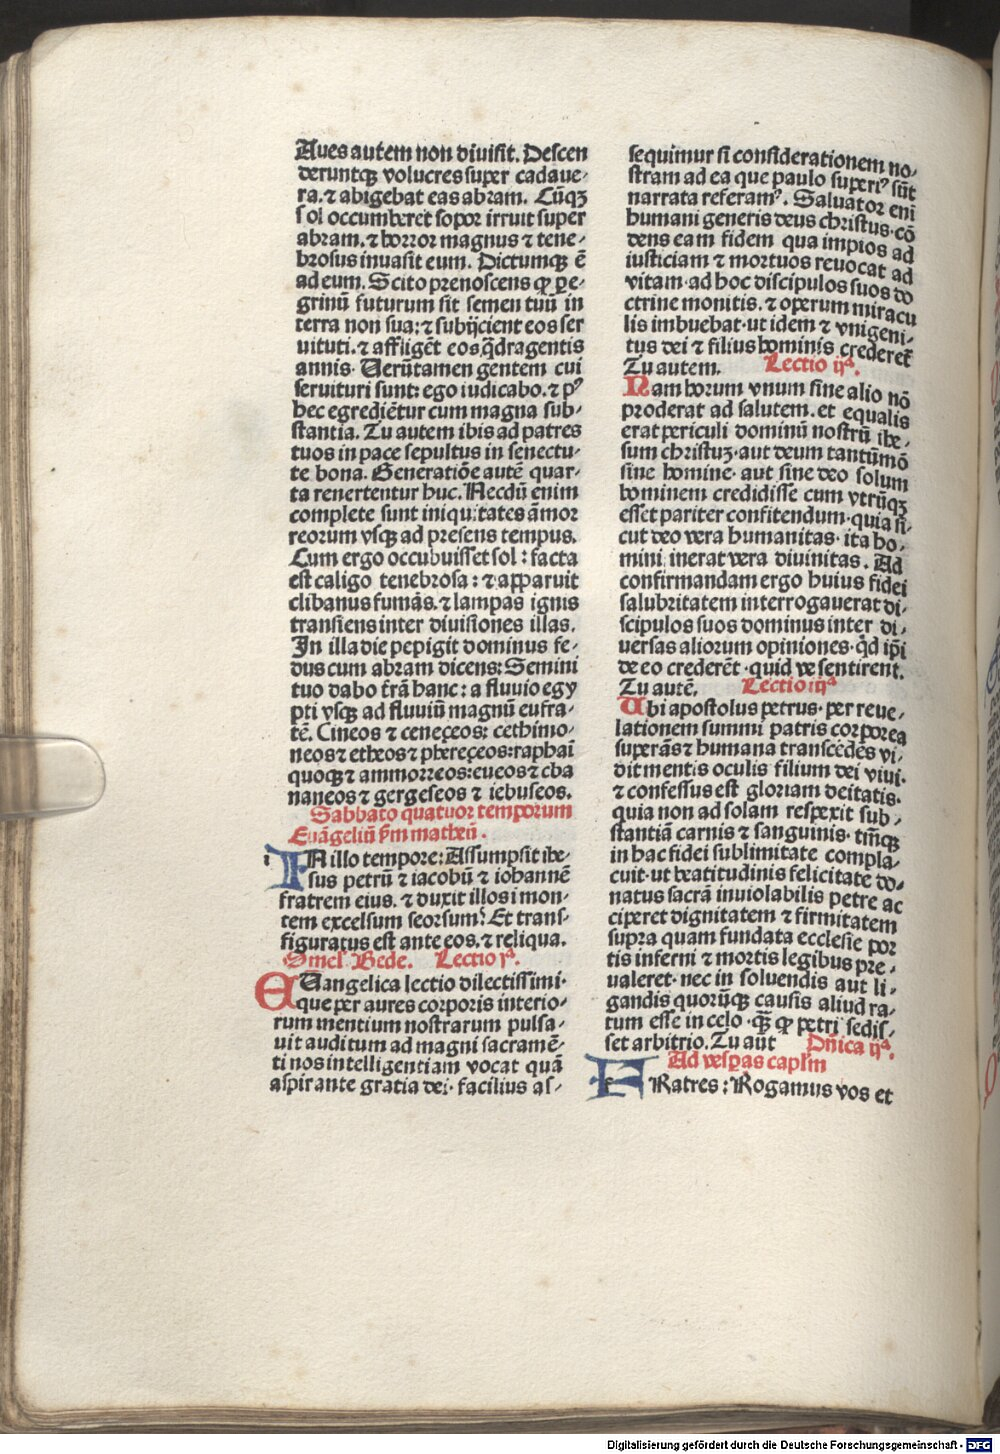 Aues autem non diuisit. Descen
deruntqꝫ volucres super cadaue-
ra. ⁊ abigebat eas abram. Cūqꝫ
sol occumberet sopor irruit super
abram. ⁊ horror magnus ⁊ tene-
brosus inuasit eum. Dictumqꝫ ē
ad eum. Scito prenoscens ꝙ ꝑe-
grinū futurum sit semen tuū in
terra non sua: ⁊ subijcient eos ser
uituti. ⁊ affligēt eos q̈dragentis
annis. Verūtamen gentem cui
seruituri sunt: ego iudicabo. ⁊ pꝰ
hec egrediētur cum magna sub-
stantia. Tu autem ibis ad patres
tuos in pace sepultus in senectu-
te bona. Generatiōe autē quar-
ta reuertentur huc. Necdū enim
complete sunt iniquitates āmor
reorum vsqꝫ ad presens tempus.
Cum ergo occubuisset sol: facta
est caligo tenebrosa: ⁊ apparuit
clibanus fumās. ⁊ lampas ignis
transiens inter diuisiones illas.
In illa die pepigit dominus fe-
dus cum abram dicens: Semini
tuo dabo t̄rā hanc: a fluuio egy
pti vsqꝫ ad fluuiū magnū eufra-
tē. Cineos ⁊ ceneçeos: cethimo-
neos ⁊ etheos ⁊ phereçeos: raphaī
quoqꝫ ⁊ ammorreos: eueos ⁊ cha
naneos ⁊ gergeseos ⁊ iebuseos.
Sabbato quatuor temporum
Euāgeliū p̄m matheū.
IN illo tempore: Assumpsit ihe-
sus petrū ⁊ iacobū ⁊ iohannē
fratrem eius. ⁊ duxit illos i mon-
tem excelsum seorsum: Et trans-
figuratus est ante eos. ⁊ reliqua.
Omel. Bede. Lectio jª.
EUangelica lectio dilectissimi.
que per aures corporis interio-
rum mentium nostrarum pulsa-
uit auditum ad magni sacramē-
ti nos intelligentiam vocat quā
aspirante gratia dei. facilius as-
sequimur si considerationem no-
stram ad ea que paulo superiꝰ sūt
narrata referamꝰ. Saluator eni
humani generis deus christus. cō
dens eam fidem qua impios ad
iusticiam ⁊ mortuos reuocat ad
vitam. ad hoc discipulos suos do
ctrine monitis. ⁊ operum miracu
lis imbuebat. ut idem ⁊ vnigeni-
tus dei ⁊ filius hominis crederet̄
Tu autem. Lectio ijª.
Nam horum vnum sine alio nō
proderat ad salutem. et equalis
erat periculi dominū nostrū ihe-
sum christuꝫ. aut deum tantūmō
sine homine. aut sine deo solum
hominem credidisse cum vtrūqꝫ
esset pariter confitendum. quia si-
cut deo vera humanitas. ita ho-
mini inerat vera diuinitas. Ad
confirmandam ergo huius fidei
salubritatem interrogauerat di-
scipulos suos dominus inter di-
uersas aliorum opiniones. q̇d ip̄i
de eo crederēt. quid ve sentirent.
Tu autē. Lectio iijª
Ubi apostolus petrus. per reue-
lationem summi patris corporea
superās ⁊ humana transcēdēs vi-
dit mentis oculis filium dei viui.
⁊ confessus est gloriam deitatis.
quia non ad solam respexit sub-
stantiā carnis ⁊ sanguinis. tm̄qꝫ
in hac fidei sublimitate compla-
cuit. ut beatitudinis felicitate do-
natus sacrā inuiolabilis petre ac
ciperet dignitatem ⁊ firmitatem
supra quam fundata ecclesie por
tis inferni ⁊ mortis legibus pre-
ualeret. nec in soluendis aut li-
gandis quorūqꝫ causis aliud ra-
tum esse in celo. qꝫ̄ ꝙ petri sedis-
set arbitrio. Tu aūt Dn̄ica ijª.
Ad vesꝑas caplm̄
FRatres: Rogamus vos et
Digitalisierung gefördert durch die Deutsche Forschungsgemeinschaft - DFG